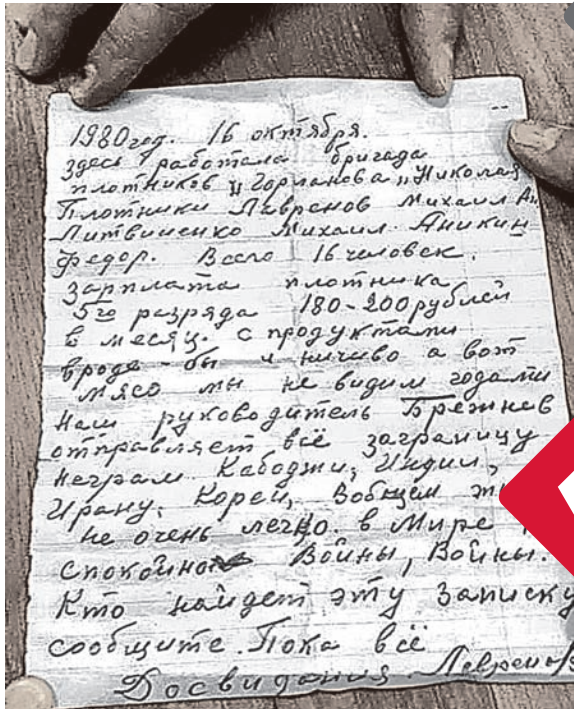 1980 год. 16 октября.
здесь работала бригада
плотников „Горланова„ Николая
Плотники Лавренов Михаил Ан
Литвиненко Михаил. Аникин
Федор. Всего 16 человек.
Зарплата плотника
5го разряда 180-200 рублей
в месяц. с продуктами
вроде-бы и ничиво а вот
мясо мы не видим годами
Наш руководитель Брежнев
отправляет всё заграницу
неграм Кабоджи, Индии,
Ирану, Кореи, Вобщем
не очень легко. в Мире
спокойно Войны, Войны.
Кто найдет эту записку
сообщите. Пока всё
Досвидания. Лавренов